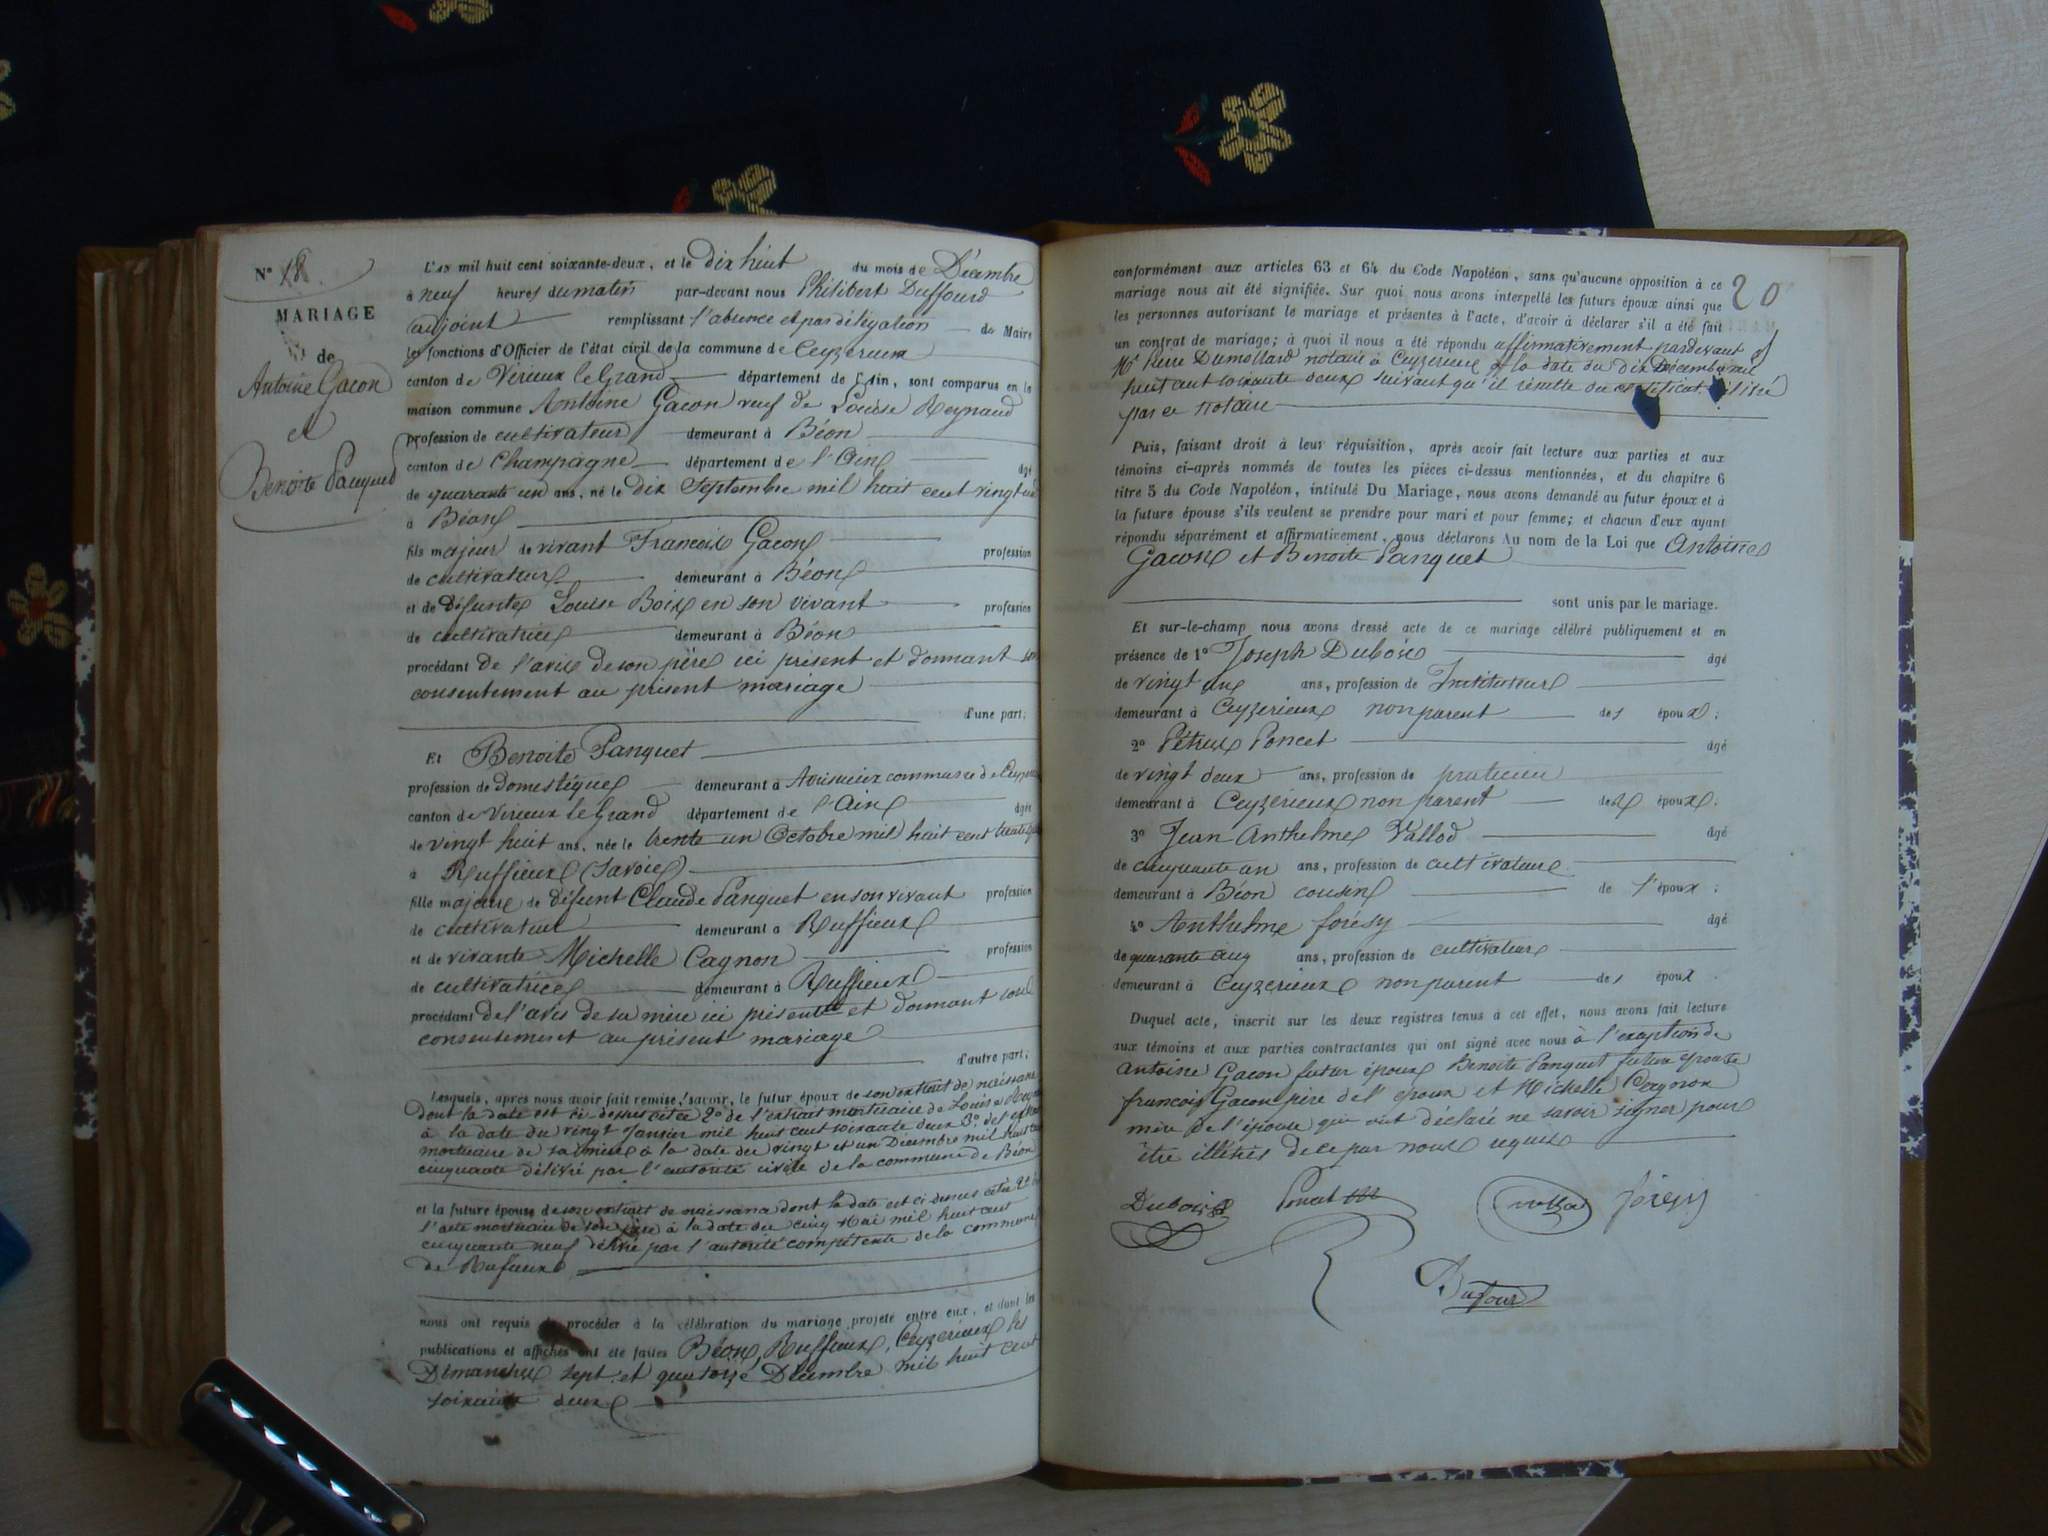 N° 18
MARIAGE
de
Antoine Gacon
et
Benoite Panquet
L'AN mil huit cent soixante-deux, et le dix huit du mois de Décembre
à neuf heures du matin par-devant nous Philibert Duffourd
adjoint remplissant l'absence et par délégation du Maire
les fonctions d'Officier de l'état civil de la commune de Ceyzerieux
canton de Virieux le Grand département de l'Ain, sont comparus en la
maison commune Antoine Gacon veuf de Louise Reynaud
profession de cultivateur demeurant à Béon
canton de Champagne département de l'Ain âgé
de quarante un ans, né le dix Septembre mil huit cent vingt un
à Béon
fils majeur de vivant François Gacon profession
de cultivateur demeurant à Béon
et de défunte Louise Boix en son vivant profession
de cultivatrice demeurant à Béon
procédant de l'avis de son père ici présent et donnant son
consentement au présent mariage
d'une part;
Et Benoite Panquet
profession de domestique demeurant à Avrissieux commune de
canton de Virieux le Grand département de l'Ain âgée
de vingt huit ans, née le trente un Octobre mil huit cent trente
à Ruffieux (Savoie)
fille majeure de défunt Claude Panquet en son vivant profession
de cultivateur demeurant à Ruffieux
et de vivante Michelle Cagnon profession
de cultivatrice demeurant à Ruffieux
procédant de l'avis de sa mère ici présente et donnant son
consentement au présent mariage
d'autre part;
Lesquels, après nous avoir fait remise, savoir, le futur époux de son extrait de naissance
dont la date est ci dessus citée 2° de l'extrait mortuaire de Louise
à la date du vingt Janvier mil huit cent soixante deux 3° de l'extrait
mortuaire de sa mère à la date du vingt et un Décembre mil huit cent
cinquante délivré par l'autorité civile de la commune de Béon
et la future épouse de son extrait de naissance dont la date est ci dessus citée 2° de
l'acte mortuaire de son père à la date du cinq Mai mil huit cent
cinquante neuf délivré par l'autorité compétente de la commune
de Rufieux
nous ont requis de procéder à la célébration du mariage projeté entre eux, et dont les
publications et affiches ont été faites Béon, Ruffieux, Ceyzerieux les
Dimanches sept et quatorze Décembre mil huit cent
soixante deux
20
conformément aux articles 63 et 64 du Code Napoléon, sans qu'aucune opposition à ce
mariage nous ait été signifiée. Sur quoi nous avons interpellé les futurs époux ainsi que
les personnes autorisant le mariage et présentes à l'acte, d'avoir à déclarer s'il a été fait
un contrat de mariage; à quoi il nous a été répondu affirmativement pardevant
Me Pierre Dumollard notaire à Ceyzerieux à la date du dix Décembre mil
huit cent soixante deux suivant qu'il résulte du certificat délivré
par ce notaire
Puis, faisant droit à leur réquisition, après avoir fait lecture aux parties et aux
témoins ci-après nommés de toutes les pièces ci-dessus mentionnées, et du chapitre 6
titre 5 du Code Napoléon, intitulé Du Mariage, nous avons demandé au futur époux et à
la future épouse s'ils veulent se prendre pour mari et pour femme; et chacun d'eux ayant
répondu séparément et affirmativement, nous déclarons Au nom de la Loi que Antoine
Gacon et Benoite Panquet
sont unis par le mariage.
Et sur-le-champ nous avons dressé acte de ce mariage célébré publiquement et en
présence de 1° Joseph Dubois âgé
de vingt ans, profession de Instituteur
demeurant à Ceyzerieux non parent des époux;
2° Pétrus Poncet âgé
de vingt deux ans, profession de praticien
demeurant à Ceyzerieux non parent des époux;
3° Jean Anthelme Vallod âgé
de cinquante un ans, profession de cultivateur
demeurant à Béon cousin de l'époux;
4° Anthelme forésy âgé
de quarante cinq ans, profession de cultivateur
demeurant à Ceyzerieux non parent des époux.
Duquel acte, inscrit sur les deux registres tenus à cet effet, nous avons fait lecture
aux témoins et aux parties contractantes qui ont signé avec nous à l'exception de
Antoine Gacon futur époux Benoite Panquet future épouse
francois Gacon père de l'époux et Michelle Cagnon
mère de l'épouse qui ont déclaré ne savoir signer pour
être illétrés de ce par nous requis
Dubois Poncet vallod forésy
Dufour